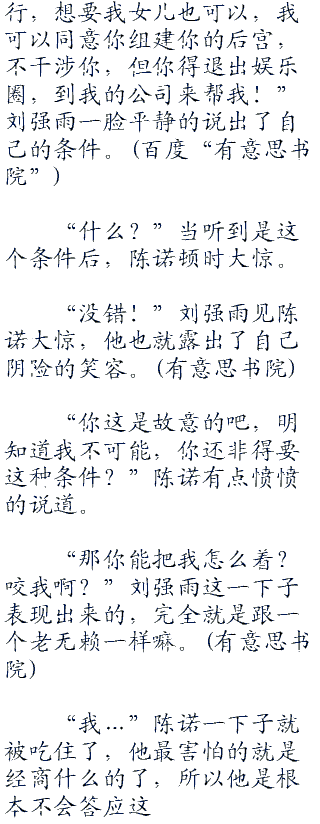 行，想要我女儿也可以，我
可以同意你组建你的后宫，
不干涉你，但你得退出娱乐
圈，到我的公司来帮我！”
刘强雨一脸平静的说出了自
己的条件。(百度“有意思书
院”)
“什么？”当听到是这
个条件后，陈诺顿时大惊。
“没错！”刘强雨见陈
诺大惊，他也就露出了自己
阴险的笑容。(有意思书院)
“你这是故意的吧，明
知道我不可能，你还非得要
这种条件？”陈诺有点愤愤
的说道。
“那你能把我怎么着？
咬我啊？”刘强雨这一下子
表现出来的，完全就是跟一
个老无赖一样嘛。(有意思书
院)
“我…”陈诺一下子就
被吃住了，他最害怕的就是
经商什么的了，所以他是根
本不会答应这